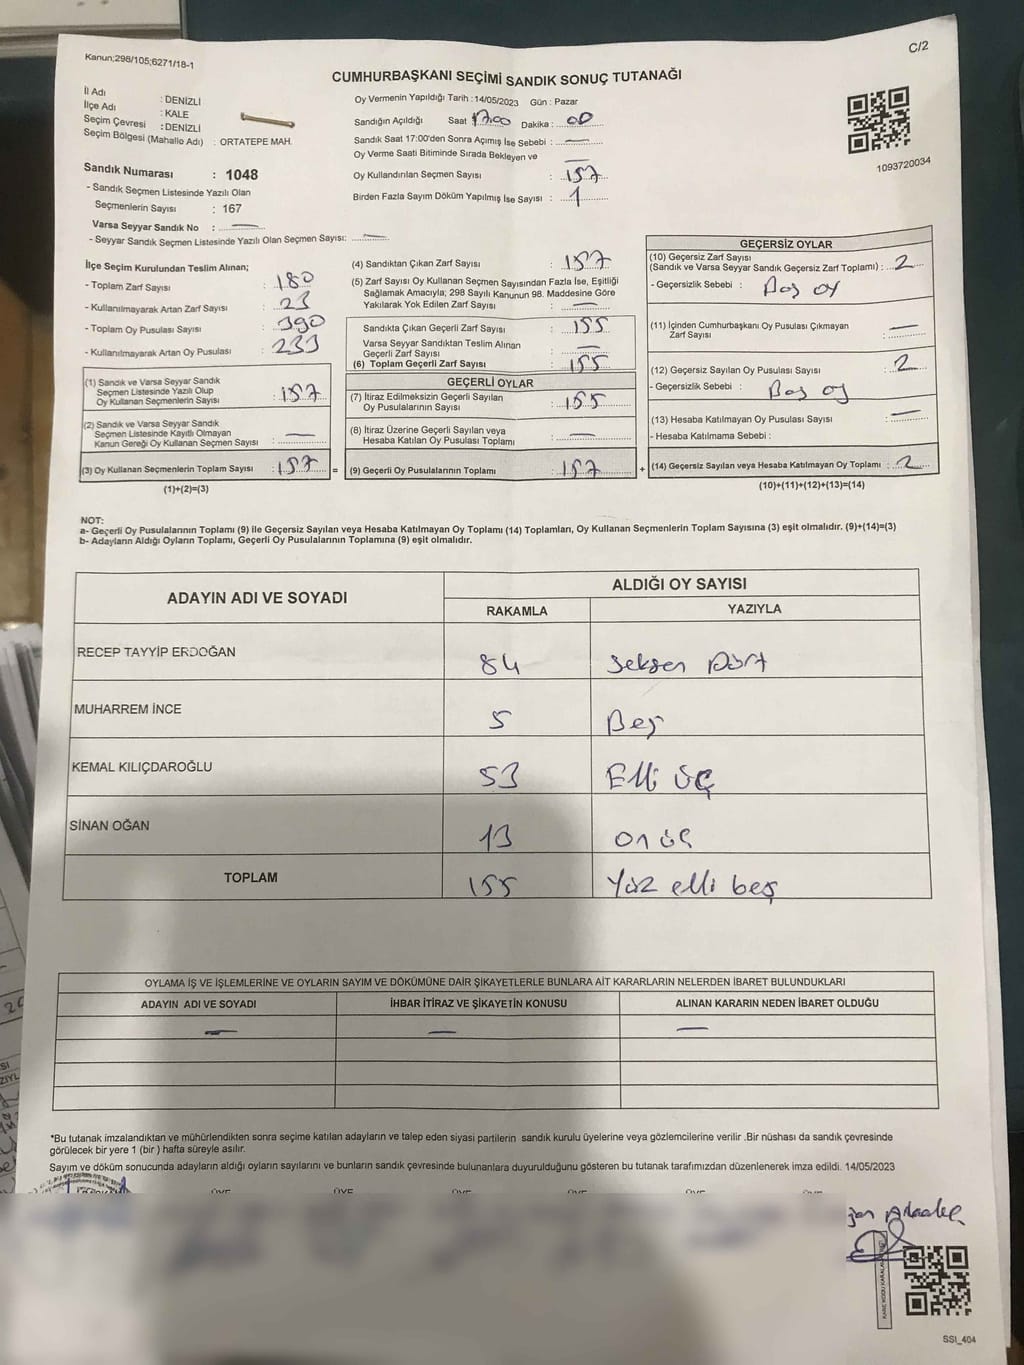 Kanun;298/105;6271/18-1
C/2
CUMHURBAŞKANI SEÇİMİ SANDIK SONUÇ TUTANAĞI
İl Adı : DENİZLİ
İlçe Adı : KALE
Seçim Çevresi : DENİZLİ
Seçim Bölgesi (Mahalle Adı) : ORTATEPE MAH.
Sandık Numarası : 1048
- Sandık Seçmen Listesinde Yazılı Olan
Seçmenlerin Sayısı : 167
Varsa Seyyar Sandık No : —
- Seyyar Sandık Seçmen Listesinde Yazılı Olan Seçmen Sayısı: —
Oy Vermenin Yapıldığı Tarih : 14/05/2023 Gün : Pazar
Sandığın Açıldığı Saat 17:00 Dakika : 00
Sandık Saat 17:00'den Sonra Açımış İse Sebebi : —
Oy Verme Saati Bitiminde Sırada Bekleyen ve —
Oy Kullandırılan Seçmen Sayısı : 157
Birden Fazla Sayım Döküm Yapılmış İse Sayısı : 1
1093720034
İlçe Seçim Kurulundan Teslim Alınan;
- Toplam Zarf Sayısı : 180
- Kullanılmayarak Artan Zarf Sayısı : 23
- Toplam Oy Pusulası Sayısı : 390
- Kullanılmayarak Artan Oy Pusulası : 233
(1) Sandık ve Varsa Seyyar Sandık
Seçmen Listesinde Yazılı Olup
Oy Kullanan Seçmenlerin Sayısı : 157
(2) Sandık ve Varsa Seyyar Sandık
Seçmen Listesinde Kayıtlı Olmayan
Kanun Gereği Oy Kullanan Seçmen Sayısı : —
(3) Oy Kullanan Seçmenlerin Toplam Sayısı : 157 =
(1)+(2)=(3)
(4) Sandıktan Çıkan Zarf Sayısı : 157
(5) Zarf Sayısı Oy Kullanan Seçmen Sayısından Fazla İse, Eşitliği
Sağlamak Amacıyla; 298 Sayılı Kanunun 98. Maddesine Göre
Yakılarak Yok Edilen Zarf Sayısı : —
Sandıkta Çıkan Geçerli Zarf Sayısı : 155
Varsa Seyyar Sandıktan Teslim Alınan
Geçerli Zarf Sayısı : —
(6) Toplam Geçerli Zarf Sayısı : 155
GEÇERLİ OYLAR
(7) İtiraz Edilmeksizin Geçerli Sayılan
Oy Pusulalarının Sayısı : 155
(8) İtiraz Üzerine Geçerli Sayılan veya
Hesaba Katılan Oy Pusulası Toplamı : —
(9) Geçerli Oy Pusulalarının Toplamı : 157 +
GEÇERSİZ OYLAR
(10) Geçersiz Zarf Sayısı
(Sandık ve Varsa Seyyar Sandık Geçersiz Zarf Toplamı) : 2
- Geçersizlik Sebebi : Boş oy
(11) İçinden Cumhurbaşkanı Oy Pusulası Çıkmayan
Zarf Sayısı : —
(12) Geçersiz Sayılan Oy Pusulası Sayısı : 2
- Geçersizlik Sebebi : Boş oy
(13) Hesaba Katılmayan Oy Pusulası Sayısı : —
- Hesaba Katılmama Sebebi :
(14) Geçersiz Sayılan veya Hesaba Katılmayan Oy Toplamı : 2
(10)+(11)+(12)+(13)=(14)
NOT:
a- Geçerli Oy Pusulalarının Toplamı (9) ile Geçersiz Sayılan veya Hesaba Katılmayan Oy Toplamı (14) Toplamları, Oy Kullanan Seçmenlerin Toplam Sayısına (3) eşit olmalıdır. (9)+(14)=(3)
b- Adayların Aldığı Oyların Toplamı, Geçerli Oy Pusulalarının Toplamına (9) eşit olmalıdır.
ADAYIN ADI VE SOYADI ALDIĞI OY SAYISI
RAKAMLA YAZIYLA
RECEP TAYYİP ERDOĞAN 84 Seksen Dört
MUHARREM İNCE 5 Beş
KEMAL KILIÇDAROĞLU 53 Elli üç
SİNAN OĞAN 13 on üç
TOPLAM 155 Yüz elli beş
OYLAMA İŞ VE İŞLEMLERİNE VE OYLARIN SAYIM VE DÖKÜMÜNE DAİR ŞİKAYETLERLE BUNLARA AİT KARARLARIN NELERDEN İBARET BULUNDUKLARI
ADAYIN ADI VE SOYADI İHBAR İTİRAZ VE ŞİKAYETİN KONUSU ALINAN KARARIN NEDEN İBARET OLDUĞU
— — —
*Bu tutanak imzalandıktan ve mühürlendikten sonra seçime katılan adayların ve talep eden siyasi partilerin sandık kurulu üyelerine veya gözlemcilerine verilir .Bir nüshası da sandık çevresinde
görülecek bir yere 1 (bir ) hafta süreyle asılır.
Sayım ve döküm sonucunda adayların aldığı oyların sayılarını ve bunların sandık çevresinde bulunanlara duyurulduğunu gösteren bu tutanak tarafımızdan düzenlenerek imza edildi. 14/05/2023
ÜYE ÜYE ÜYE ÜYE ÜYE ÜYE
SSI_404